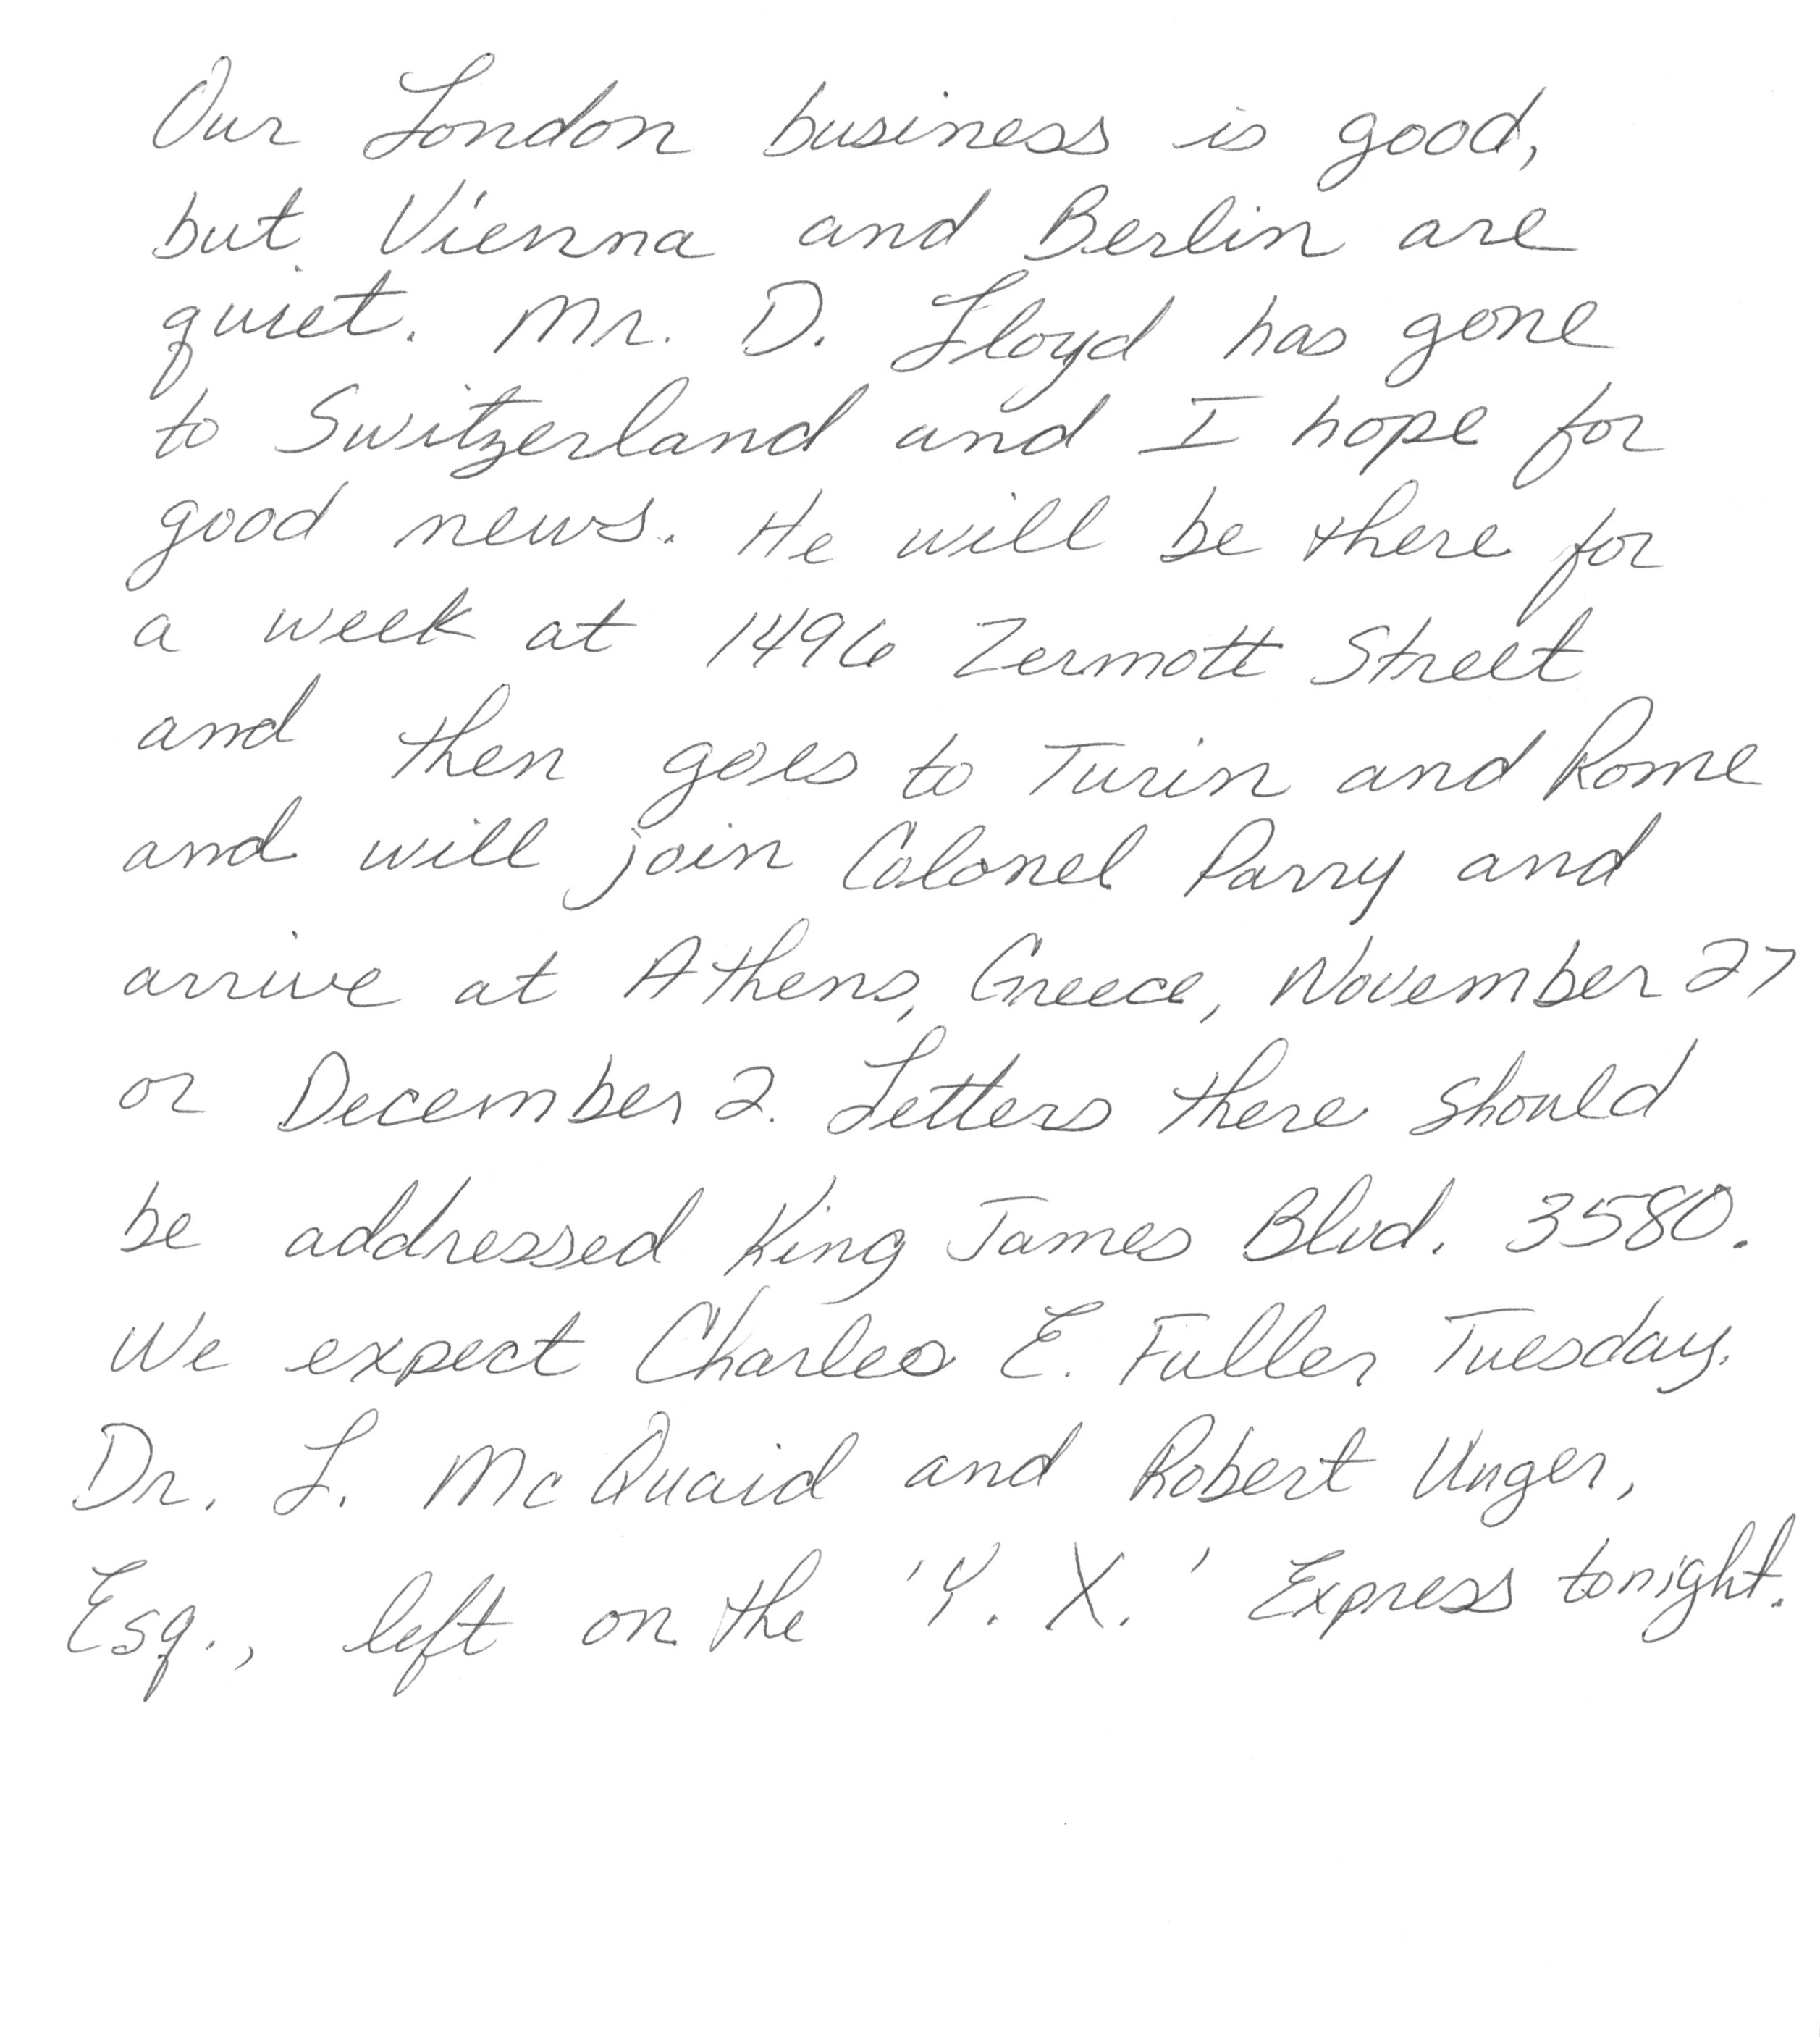 Our London business is good,
but Vienna and Berlin are
quiet. Mr. D. Lloyd has gone
to Switzerland and I hope for
good news. He will be there for
a week at 1496 Zermott Street
and then goes to Turin and Rome
and will join Colonel Parry and
arrive at Athens, Greece, November 27
or December 2. Letters there should
be addressed King James Blvd. 3580.
We expect Charles E. Fuller Tuesday.
Dr. L. McQuaid and Robert Unger,
Esq., left on the 'Y. X.' Express tonight.